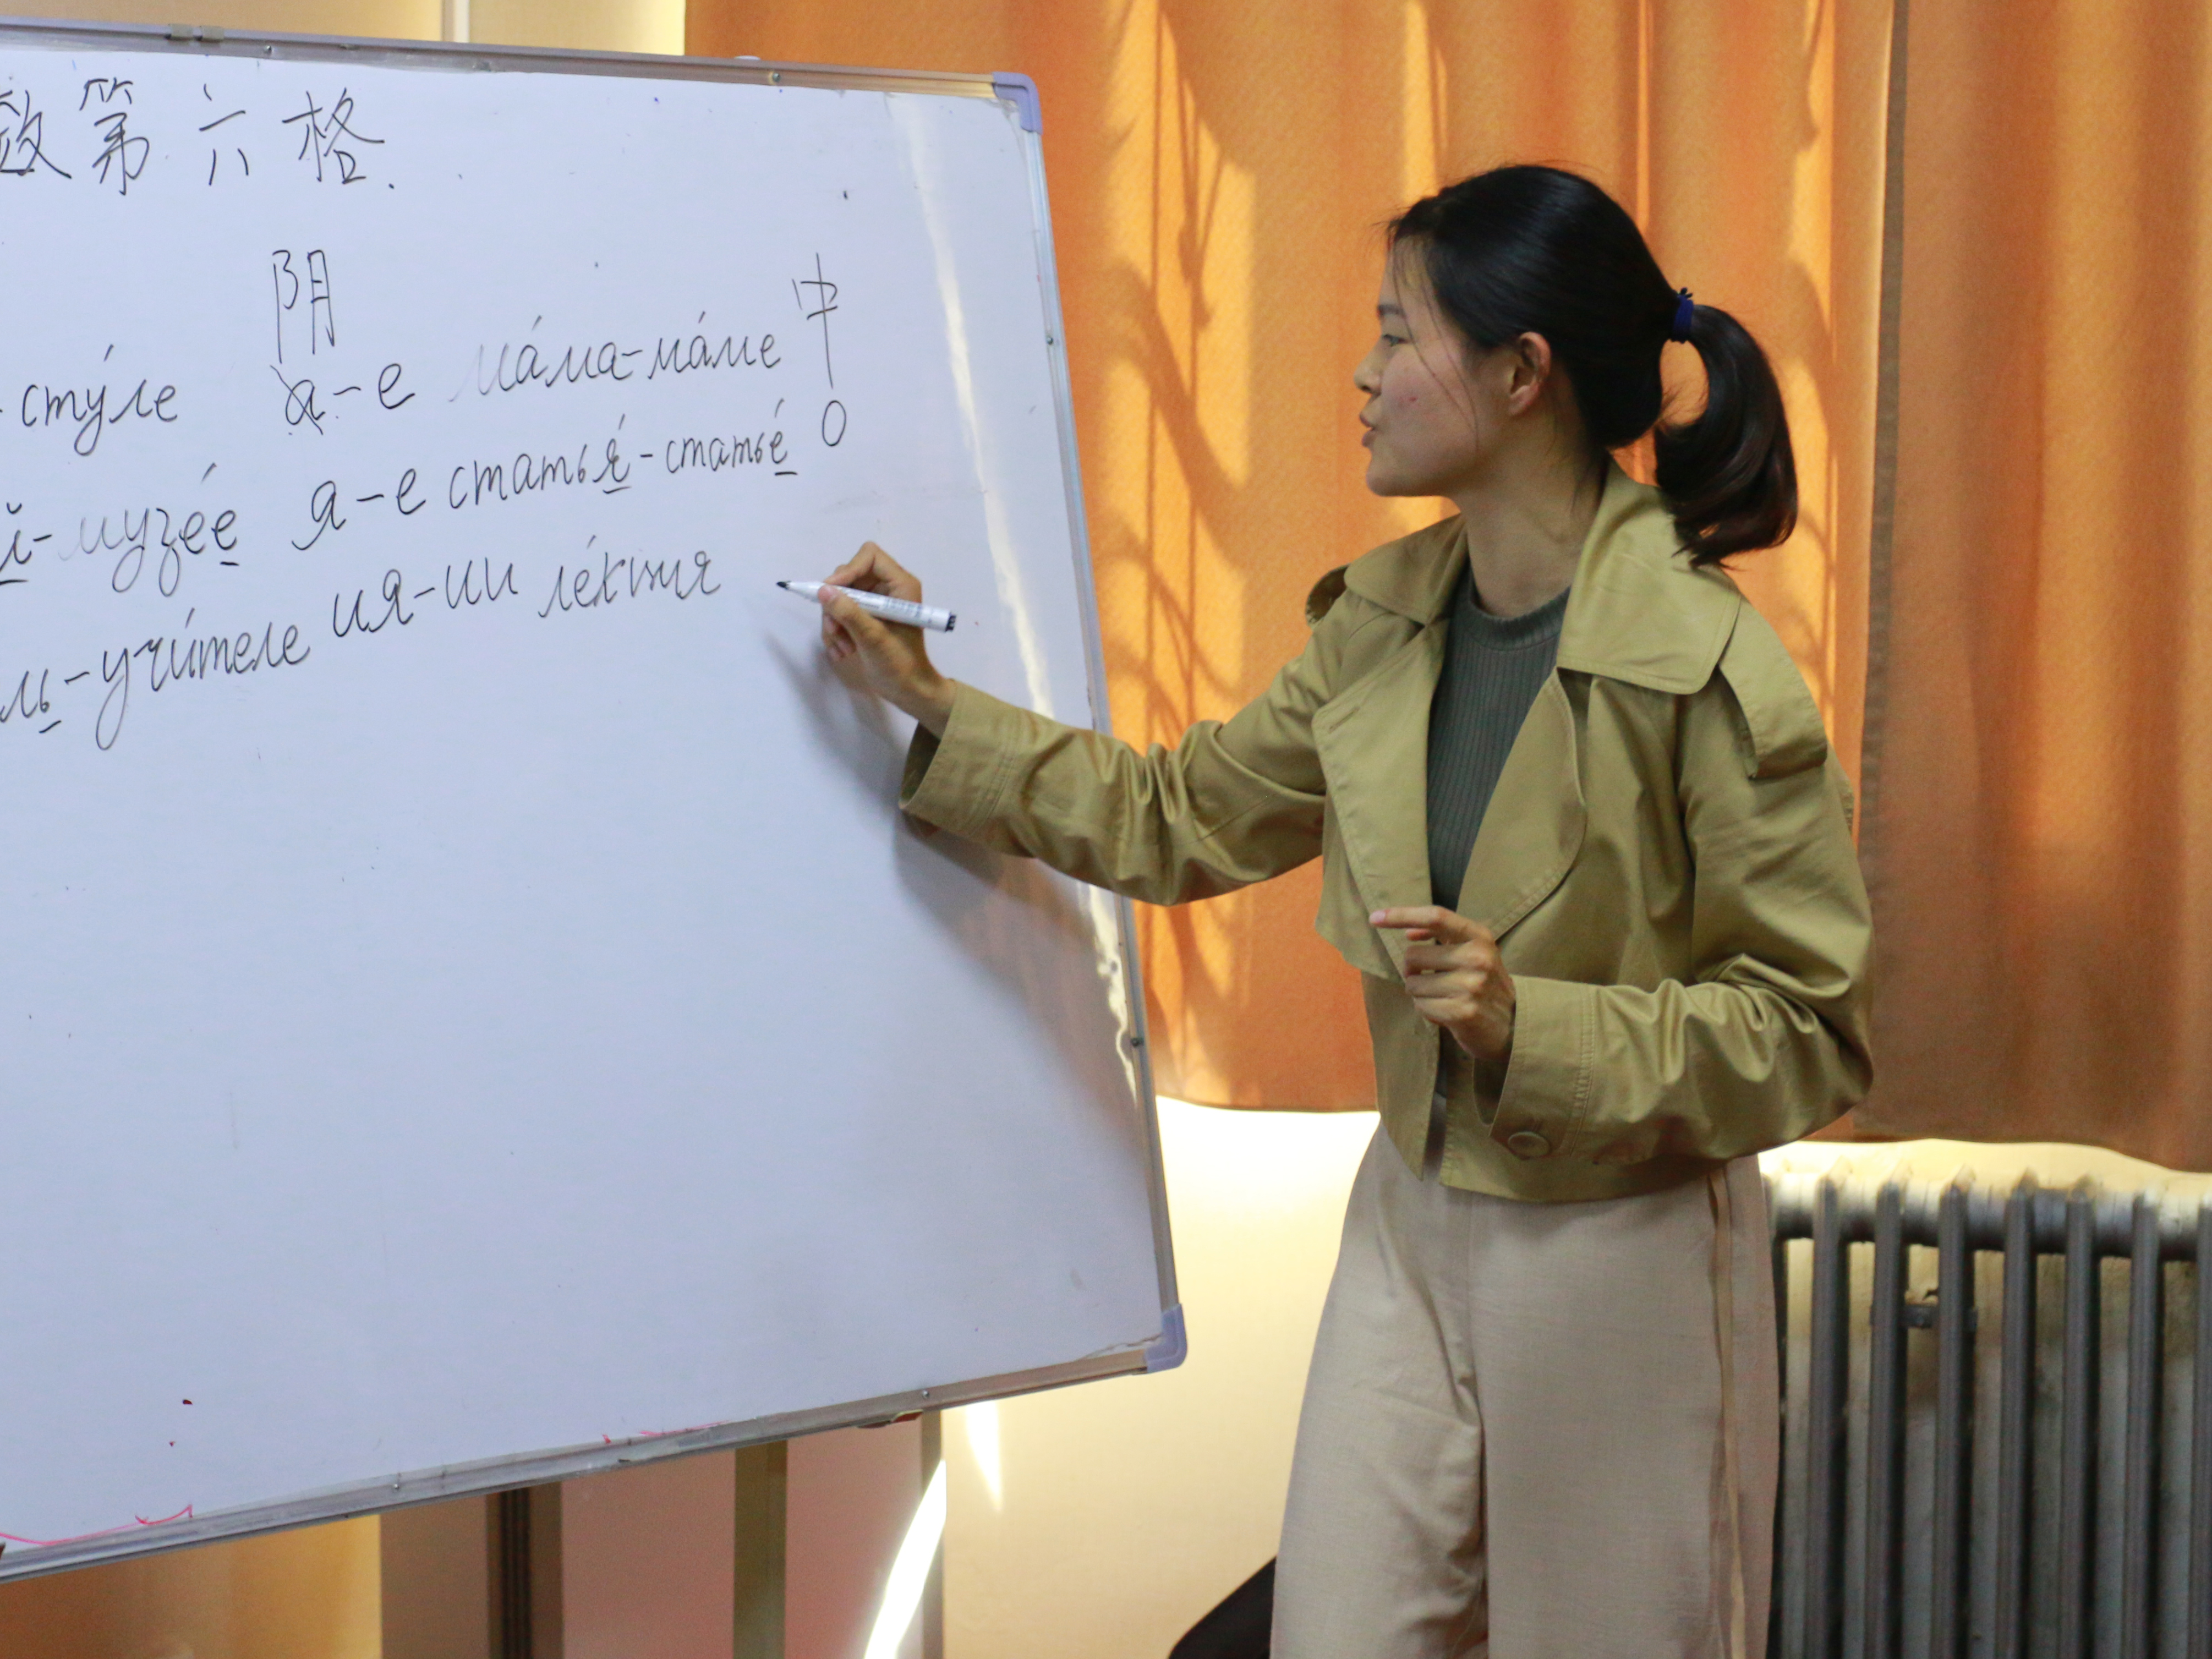 数第六格.
阴 中
-стýле а-е мáма-мáме о
й-музéе я-е статья́-статьé
ль-учи́теле ия-ии лéкция